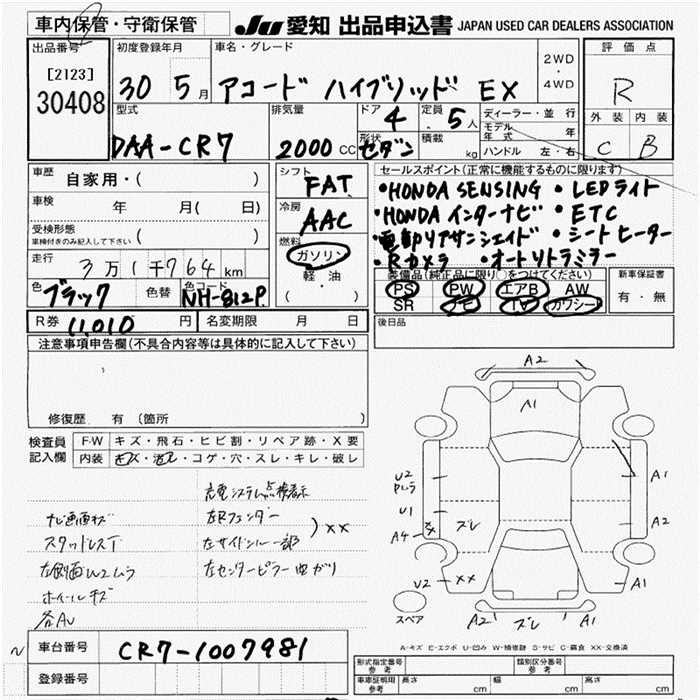 車内保管・守衛保管
JU 愛知 出品申込書 JAPAN USED CAR DEALERS ASSOCIATION
出品番号
[2123]
30408
初度登録年月
30 5月
車名・グレード
アコード ハイブリッド EX
2WD
・
4WD
評価点
R
外装 内装
C B
型式
DAA-CR7
排気量
2000 CC
ドア 4
定員 5人
形状 セダン
積載 kg
ディーラー・並行
モデル年式 年
ハンドル 左・右
車歴 自家用・( )
車検 年 月( 日)
受検形態
車検付きのみ記入して下さい ( )
走行 3万1千764km
色 ブラック
色替
色コード NH-812P
シフト FAT
冷房 AAC
燃料
ガソリン
軽油
( )
セールスポイント(正常に機能するものに限ります)
・HONDA SENSING ・LEDライト
・HONDA インターナビ ・ETC
・電動リアサンシェイド ・シートヒーター
・Rカメラ ・オートリトラミラー
装備品(純正品に限り○をつけてください)
PS PW エアB AW
SR ナビ TV カワシート
新車保証書
有・無
R券 11,010 円
名変期限 月 日
後日品
注意事項申告欄(不具合内容等は具体的に記入して下さい)
修復歴 有 (箇所 )
検査員記入欄
F・W キズ・飛石・ヒビ割・リペア跡・X要
内装 キズ・汚レ・コゲ・穴・スレ・キレ・破レ
充電システム点検表示
ナビ画面キズ
左Rフェンダー
スタッドレスT
左サイドシル一部
) ××
左側面W2ムラ
左センターピラー曲がり
ホイールキズ
各AU
A2
A1
U2
U1
A4
××
ズレ
A1
A2
U2
××
A1
スペア
A2
ズレ
A1
A-キズ E-エクボ U-凹み W-補修跡 S-サビ C-腐食 XX-交換済
車台番号 CR7-1007981
登録番号
形式指定番号 参考
類別区分番号 参考
車庫証明用 参考
長さ cm
幅 cm
高さ cm